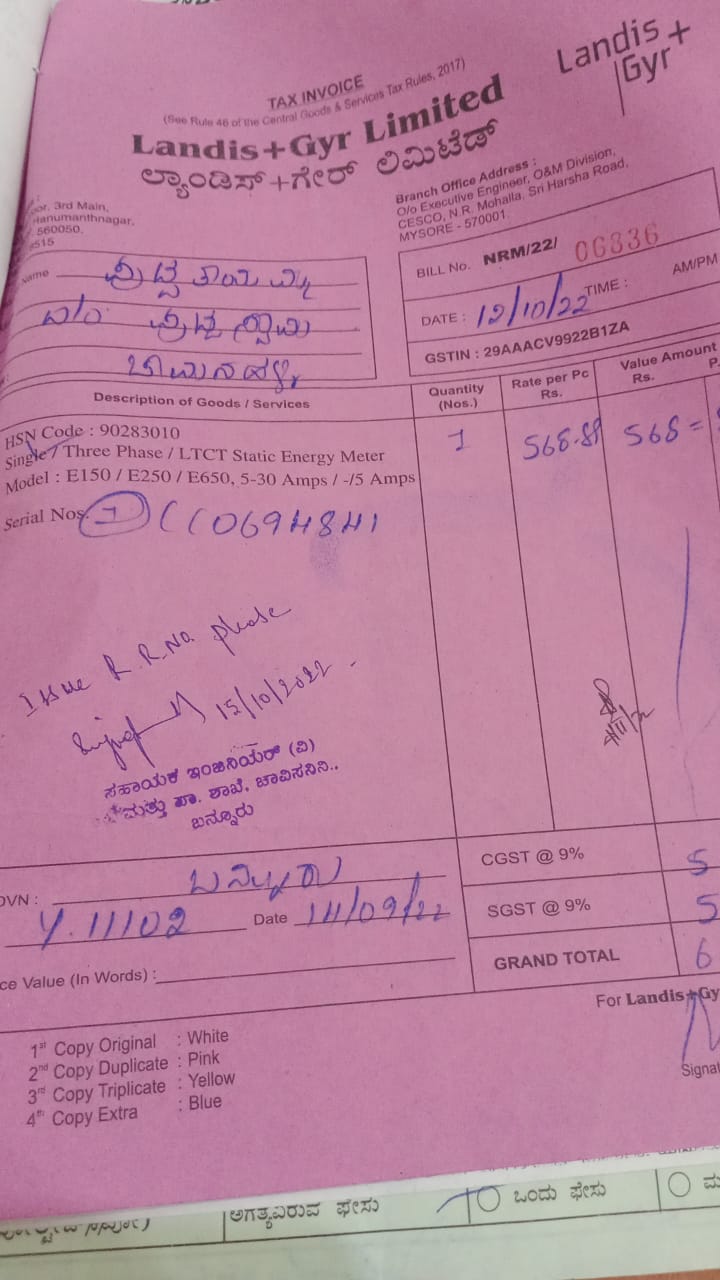 Landis+
Gyr
TAX INVOICE
(See Rule 46 of the Central Goods & Services Tax Rules, 2017)
Landis+Gyr Limited
ಲ್ಯಾಂಡಿಸ್+ಗೇರ್ ಲಿಮಿಟೆಡ್
oor, 3rd Main,
Hanumanthnagar,
560050,
Branch Office Address :
O/o Executive Engineer, O&M Division,
CESCO, N.R. Mohalla, Sri Harsha Road,
MYSORE - 570001.
BILL No. NRM/22/ 06336
DATE : 12/10/22 TIME : AM/PM
GSTIN : 29AAACV9922B1ZA
Name
Description of Goods / Services
Quantity (Nos.)
Rate per Pc Rs.
Value Amount Rs. P.
HSN Code : 90283010
Single / Three Phase / LTCT Static Energy Meter
Model : E150 / E250 / E650, 5-30 Amps / -/5 Amps
1 568.81 568=
Serial Nos. 1 CC0694841
Issue R.R.No. please
15/10/2022
ಸಹಾಯಕ ಇಂಜಿನಿಯರ್ (ವಿ)
ಮತ್ತು ಪಾ. ಶಾಖೆ, ಚಾವಿಸನಿನಿ.,
ಬನ್ನೂರು
CGST @ 9% 5
DVN : ಬನ್ನೂರು
SGST @ 9% 5
Y.11102 Date 14/09/22
GRAND TOTAL 6
ce Value (In Words) :
For Landis+Gy
1st Copy Original : White
2nd Copy Duplicate : Pink
3rd Copy Triplicate : Yellow
4th Copy Extra : Blue
Signat
ಅಗತ್ಯವಿರುವ ಫೇಸು
ಒಂದು ಫೇಸು